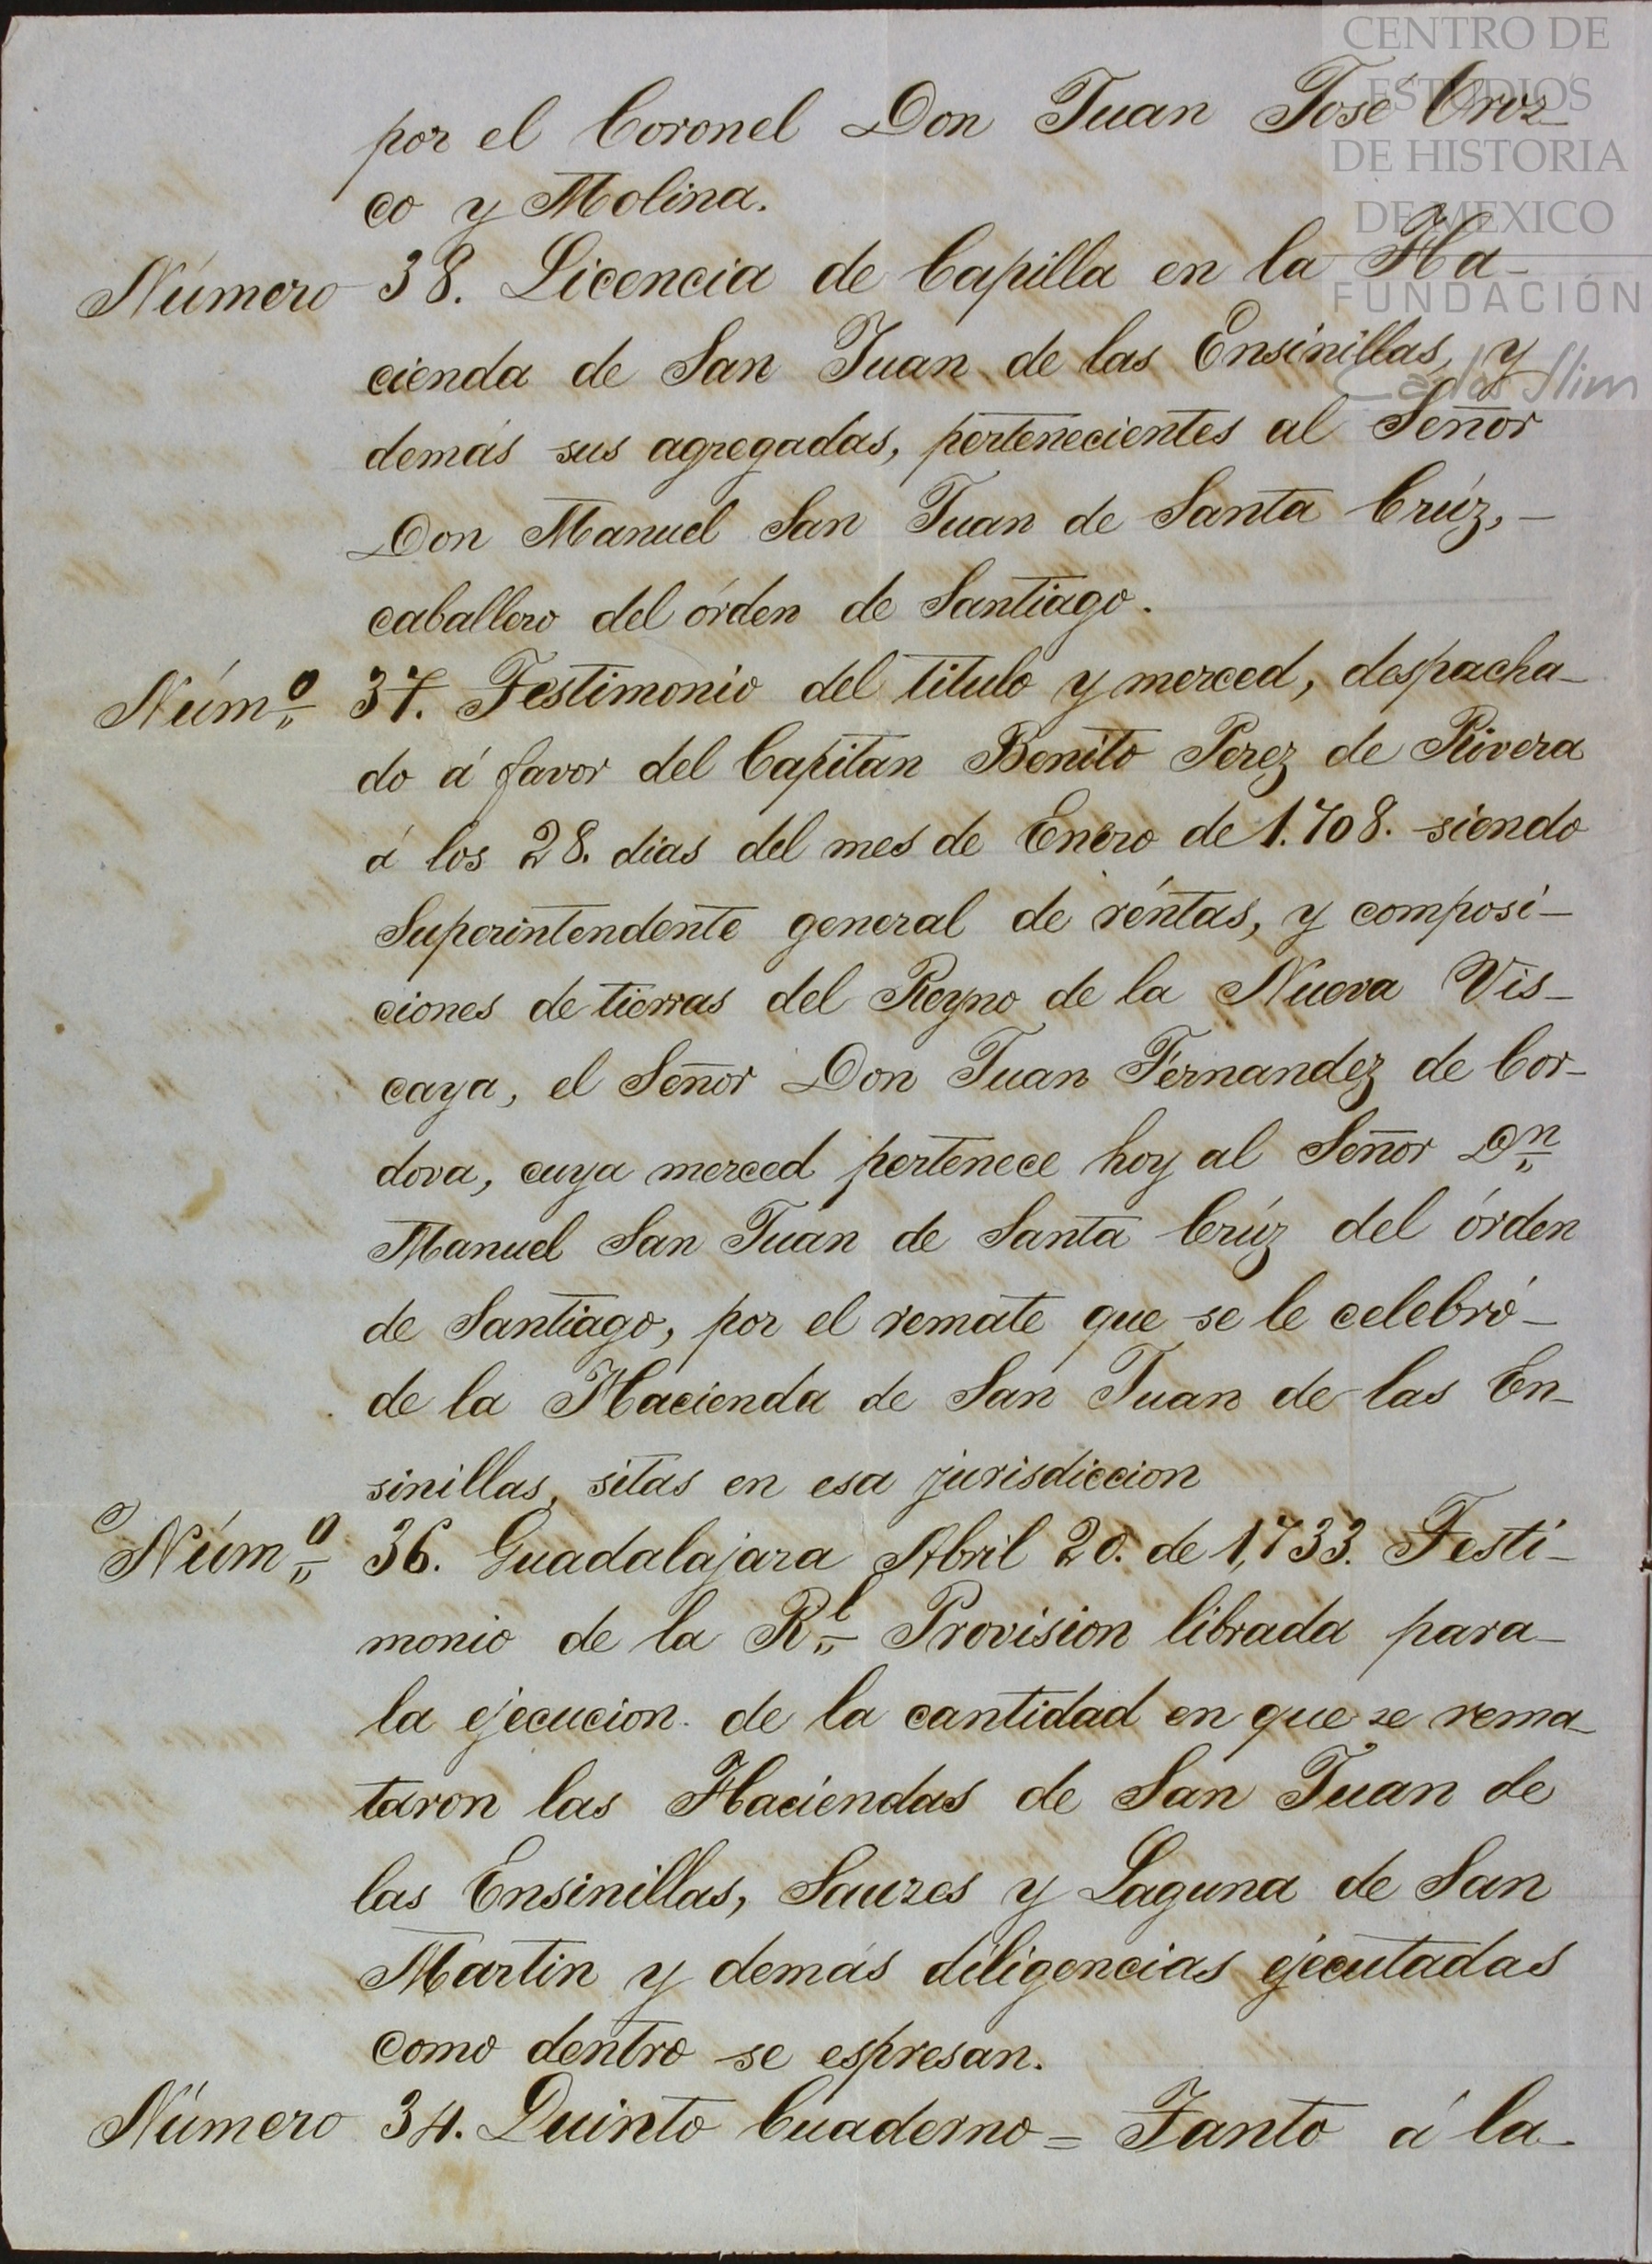 CENTRO DE
ESTUDIOS
DE HISTORIA
DE MEXICO
FUNDACIÓN
Carlos Slim
por el Coronel Don Juan José Oroz-
co y Molina.
Número 38. Licencia de Capilla en la Ha-
cienda de San Juan de las Ensinillas, y
demás sus agregadas, pertenecientes al Señor
Don Manuel San Juan de Santa Crúz, -
caballero del órden de Santiago.
Núm.º 37. Testimonio del titulo y merced, despacha-
do á favor del Capitan Benito Perez de Rivera
á los 28. dias del mes de Enero de 1.708. siendo
Superintendente general de réntas, y composi-
ciones de tierras del Reyno de la Nueva Vis-
caya, el Señor Don Juan Fernandez de Cor-
dova, cuya merced pertenece hoy al Señor Dn
Manuel San Juan de Santa Crúz del órden
de Santiago, por el remate que se le celebró -
de la Hacienda de San Juan de las En-
sinillas, sitas en esa jurisdiccion
Núm.º 36. Guadalajara Abril 20. de 1,733. Testi-
monio de la Rl Provision librada para -
la ejecucion de la cantidad en que se rema-
taron las Haciendas de San Juan de
las Ensinillas, Sauzes y Laguna de San
Martin y demás diligencias ejecutadas
como dentro se espresan.
Número 34. Quinto Cuaderno = Tanto á la -